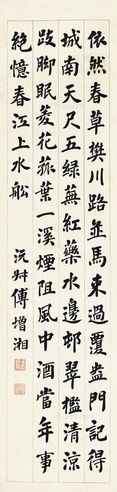 依然春草樊川路並馬來過覆盎門記得
城南天尺五綠蕪紅藥水邊邨翠檻清涼
跂腳眠菱花菰葉一溪煙阻風中酒當年事
絕憶春江上水船
沅叔傅增湘